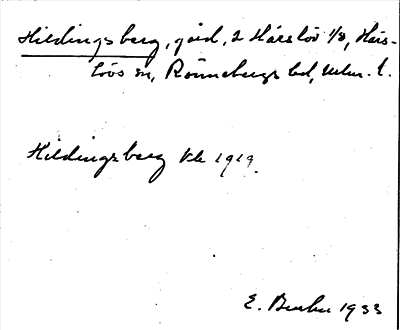 Hildingsberg, gård, 2 Härslöv 1/8, Härs-
lövs sn, Rönnebergs hd, Malm. l.
Hildingsberg Kb 1919.
E. 1933